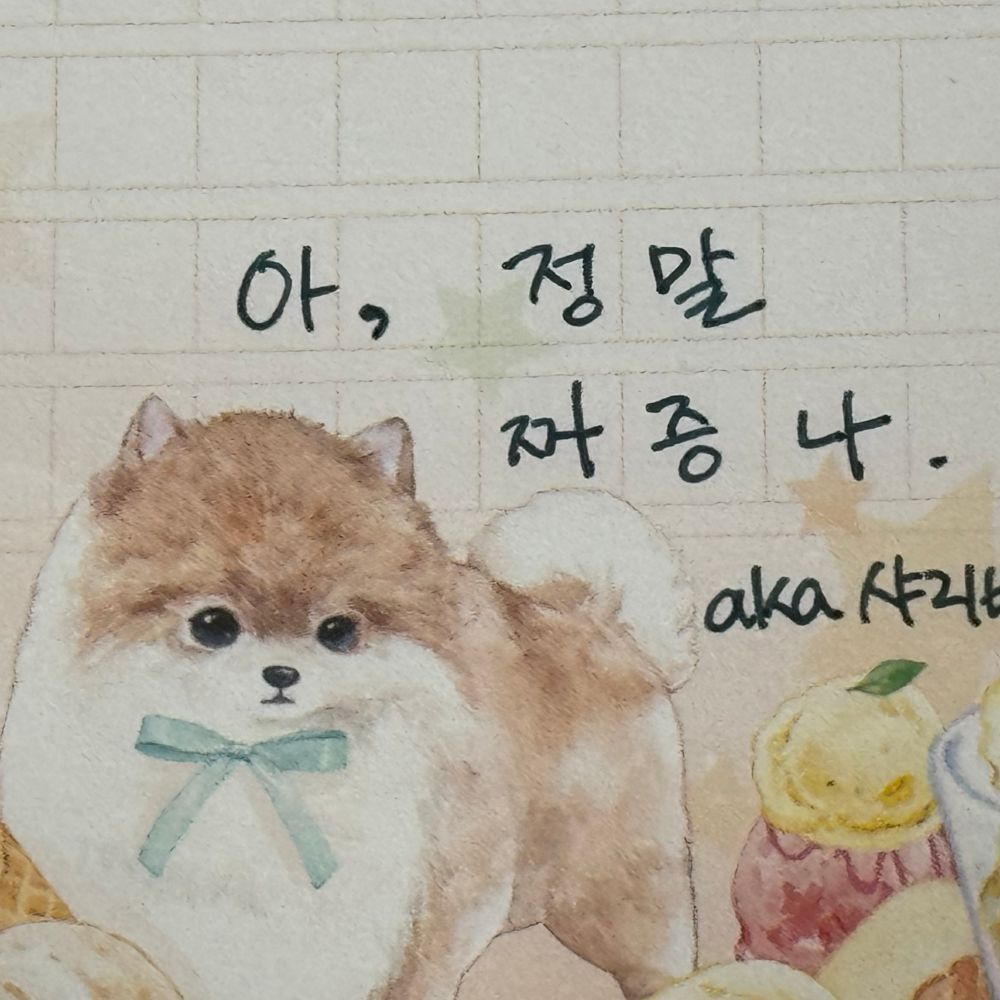 아, 정말
짜증나.
aka